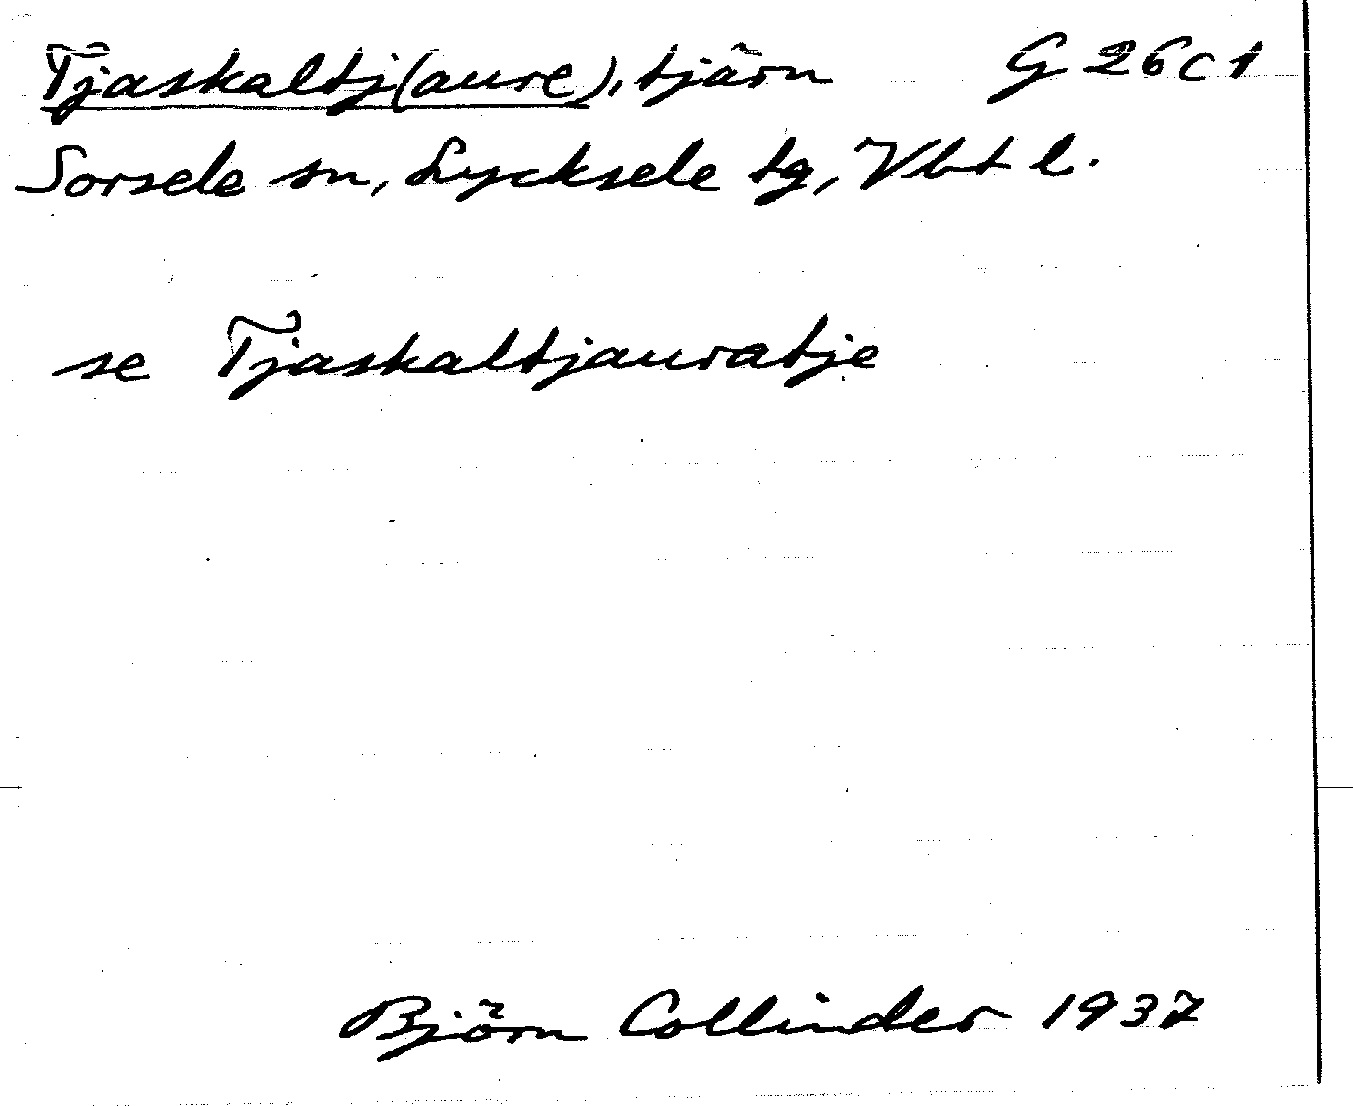 Tjaskaltj(aure), tjärn G 26 c 1
Sorsele sn, Lycksele tg, Vbt l.
se Tjaskaltjauratje
Björn Collinder 1937